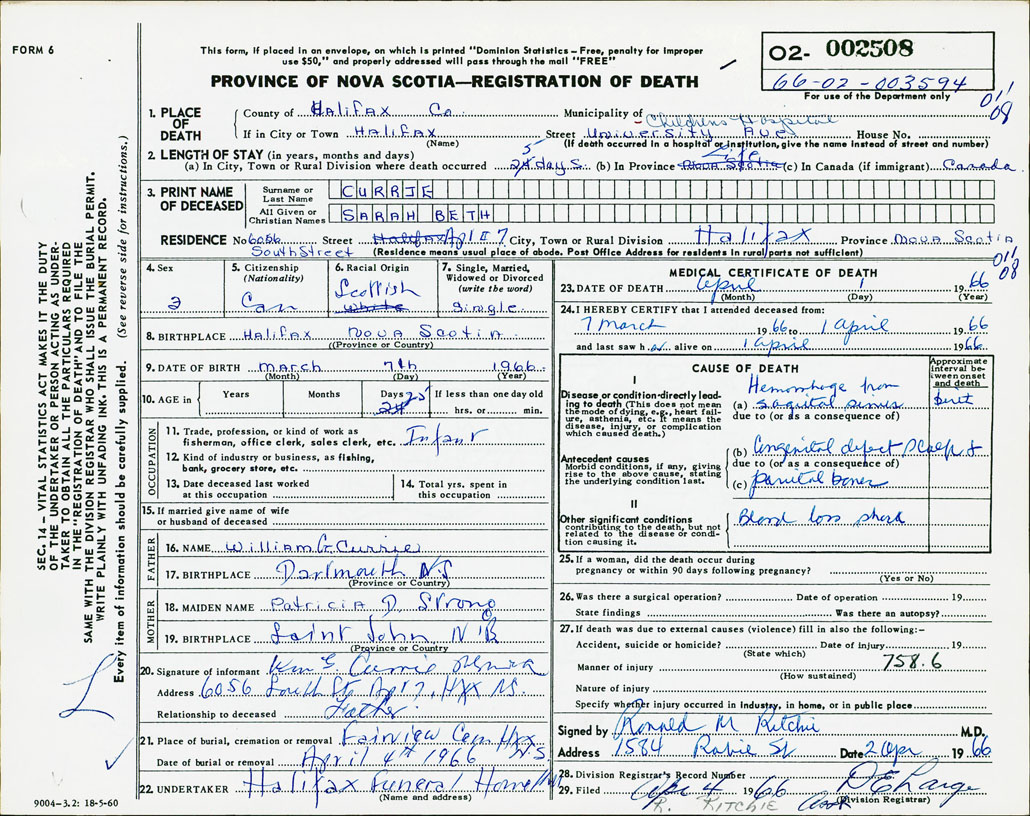 FORM 6
This form, if placed in an envelope, on which is printed "Dominion Statistics – Free, penalty for improper
use $50," and properly addressed will pass through the mail "FREE"
O2- 002508
66-02-003594
For use of the Department only
PROVINCE OF NOVA SCOTIA—REGISTRATION OF DEATH
011
08
1. PLACE OF DEATH
County of Halifax Co. Municipality of
Childrens Hospital
If in City or Town Halifax Street University Ave House No.
(Name) (If death occurred in a hospital or institution, give the name instead of street and number)
2. LENGTH OF STAY (in years, months and days)
5 Life
(a) In City, Town or Rural Division where death occurred 24 days. (b) In Province Nova Scotia (c) In Canada (if immigrant) Canada
3. PRINT NAME OF DECEASED
Surname or Last Name CURRIE
All Given or Christian Names SARAH BETH
RESIDENCE No 6056 Street Halifax Apt # 7 City, Town or Rural Division Halifax Province Nova Scotia
South Street (Residence means usual place of abode. Post Office Address for residents in rural parts not sufficient)
011
08
4. Sex 2
5. Citizenship (Nationality) Can
6. Racial Origin Scottish White
7. Single, Married, Widowed or Divorced (write the word) Single
8. BIRTHPLACE Halifax Nova Scotia
(Province or Country)
9. DATE OF BIRTH March 7th 1966
(Month) (Day) (Year)
10. AGE in Years Months Days 25 24 If less than one day old
hrs. or min.
OCCUPATION
11. Trade, profession, or kind of work as
fisherman, office clerk, sales clerk, etc. Infant
12. Kind of industry or business, as fishing,
bank, grocery store, etc.
13. Date deceased last worked
at this occupation
14. Total yrs. spent in
this occupation
15. If married give name of wife
or husband of deceased
FATHER
16. NAME William G. Currie
17. BIRTHPLACE Dartmouth N.S
(Province or Country)
MOTHER
18. MAIDEN NAME Patricia D Strong
19. BIRTHPLACE Saint John N.B
(Province or Country)
20. Signature of informant Wm G. Currie
Address 6056 South St Apt 7, Hfx N.S.
Relationship to deceased Father
21. Place of burial, cremation or removal Fairview Cem Hfx
N.S
Date of burial or removal April 4th 1966
22. UNDERTAKER Halifax Funeral Home
(Name and address)
9004-3.2: 18-5-60
MEDICAL CERTIFICATE OF DEATH
23. DATE OF DEATH April 1 1966
(Month) (Day) (Year)
24. I HEREBY CERTIFY that I attended deceased from:
7 March 1966 to 1 April 1966
and last saw her alive on 1 April 1966
CAUSE OF DEATH
Approximate interval between onset and death
I
Disease or condition directly leading to death (This does not mean the mode of dying, e.g., heart failure, asthenia, etc. It means the disease, injury, or complication which caused death.)
Hemorrhage from
(a) sagital sinus
due to (or as a consequence of)
Antecedent causes
Morbid conditions, if any, giving rise to the above cause, stating the underlying condition last.
(b) Congenital defect scalp &
due to (or as a consequence of)
(c) parietal bones
II
Other significant conditions
contributing to the death, but not related to the disease or condition causing it.
Blood loss shock
25. If a woman, did the death occur during
pregnancy or within 90 days following pregnancy?
(Yes or No)
26. Was there a surgical operation? Date of operation 19
State findings Was there an autopsy?
27. If death was due to external causes (violence) fill in also the following:–
Accident, suicide or homicide? Date of injury 19
(State which)
758.6
Manner of injury
(How sustained)
Nature of injury
Specify whether injury occurred in industry, in home, or in public place
Signed by Ronald M Ritchie M.D.
Address 1584 Robie St Date 2 Apr 1966
28. Division Registrar's Record Number
29. Filed Apr 4 1966 D E Large
(Division Registrar)
R. RITCHIE
SEC. 14 – VITAL STATISTICS ACT MAKES IT THE DUTY
OF THE UNDERTAKER OR PERSON ACTING AS UNDER-
TAKER TO OBTAIN ALL THE PARTICULARS REQUIRED
IN THE "REGISTRATION OF DEATH" AND TO FILE THE
SAME WITH THE DIVISION REGISTRAR WHO SHALL ISSUE THE BURIAL PERMIT.
WRITE PLAINLY WITH UNFADING INK. THIS IS A PERMANENT RECORD.
Every item of information should be carefully supplied. (See reverse side for instructions.)